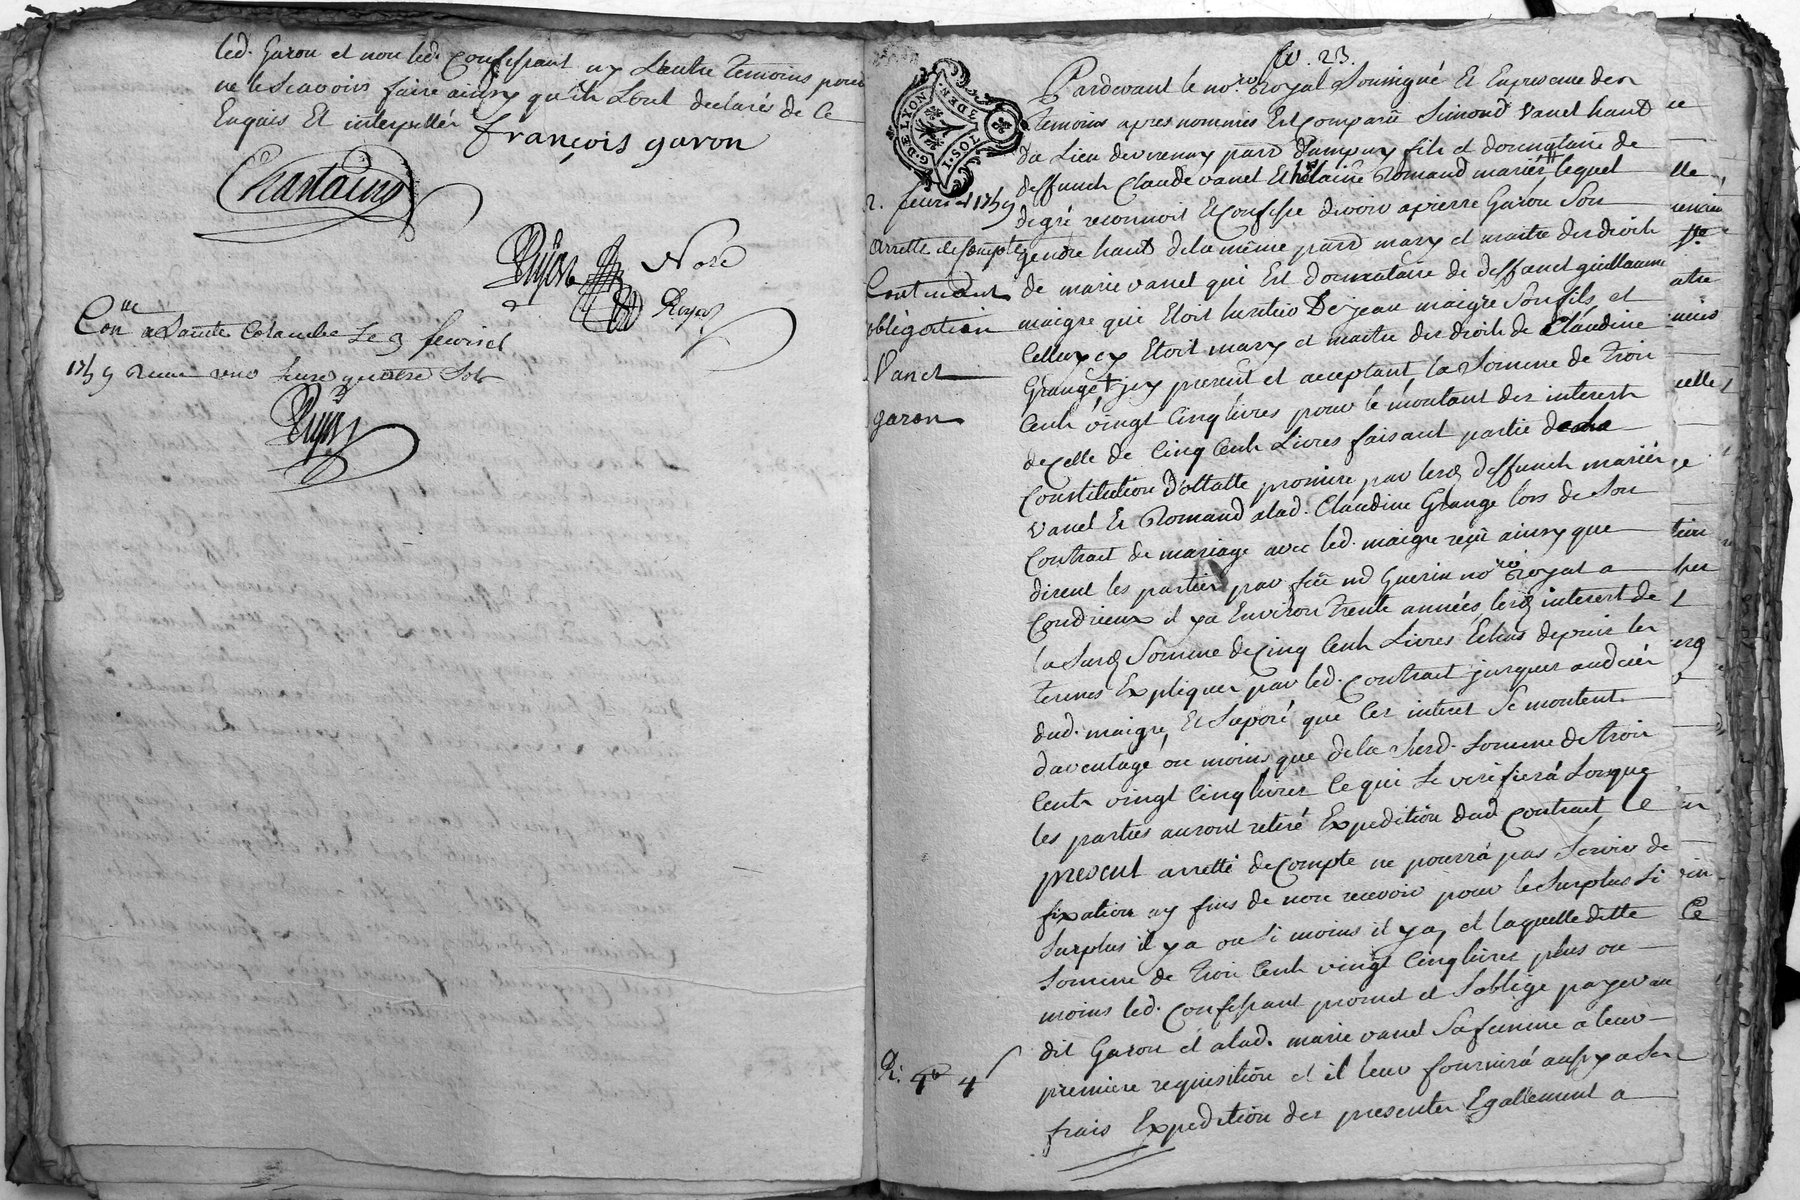 led. Garon et non led. Confessant ny L'autre temoins pour
ne le Scavoir faire ainsy qu'ils L'ont declarés de Ce
Enquis Et interpellés
françois garon
Chastaing
Note
Royal
Con.lle a Sainte Colombe Le 9 feuvrier
1759 Receu une livre quatre Sols
fo. 23.
G. DE LYON
DEN
VI. SOLS
2. feuvrier 1759
arretté de Compte
Contenant
obligation
Vanel
garon
Pardevant le no.re Royal Soussigné Et En presence des
temoins apres nommés Est Comparu Simond Vanel hant
du Lieu de verenay parr. D'ampuis fils et donnataire de
deffunch Claude vanel Et helaine Romand mariés lequel
de gré reconnoit Et Confesse devoir a pierre Garon Son
gendre hant de la même parr. mary et maitre des droits
de marie vanel qui Est donnataire de deffunct guillaume
maigre qui Etoit heritier De jean maigre Son fils, et
Celluy cy Etoit mary et maitre des droits de Claudine
Grange + jcy present et acceptant la Somme de trois
Cents vingt Cinq livres pour le montant des interests
de Celle de Cinq Cents Livres faisant partie de la
Constitution Dottalle promise par lesd. deffuncts mariés
Vanel Et Romand a lad. Claudine Grange lors de Son
Contract de mariage avec led. maigre reçû ainsy que
disent les parties par feû md Guerin no.re Royal a
Condrieux il y a Environ trente années, lesd. interest de
la Susd. Somme de Cinq Cents Livres Echus depuis les
termes Expliquer par led. Contract jusques au deces
dud. maigre, Et Suposé que les interest Se montent
davantage ou moins que de la Susd. Somme de trois
Cents vingt Cinq livres Ce qui Se verifiera Lorsque
les parties auront retiré Expedition dud. Contract, Le
present arretté de Compte ne pourra pas Servir de
fixation ny fins de non recevoir pour le Surplus Si
Surplus il y a ou Si moins il y a, et laquelle ditte
Somme de trois Cents vingt Cinq livres plus ou
moins led. Confessant promet et S'oblige payer au
dit Garon et a lad. marie vanel Sa femme a leur
premiere requisition et il leur fournira aussy a Ses
frais Expedition des presentes Egallement a